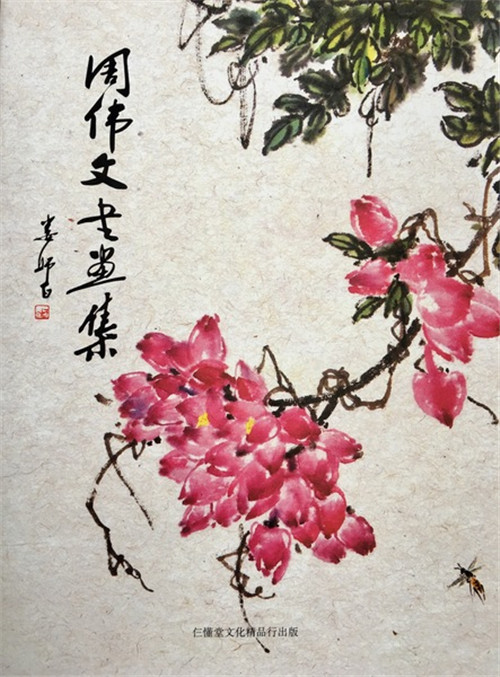 周伟文书画集
娄师白
仨懂堂文化精品行出版